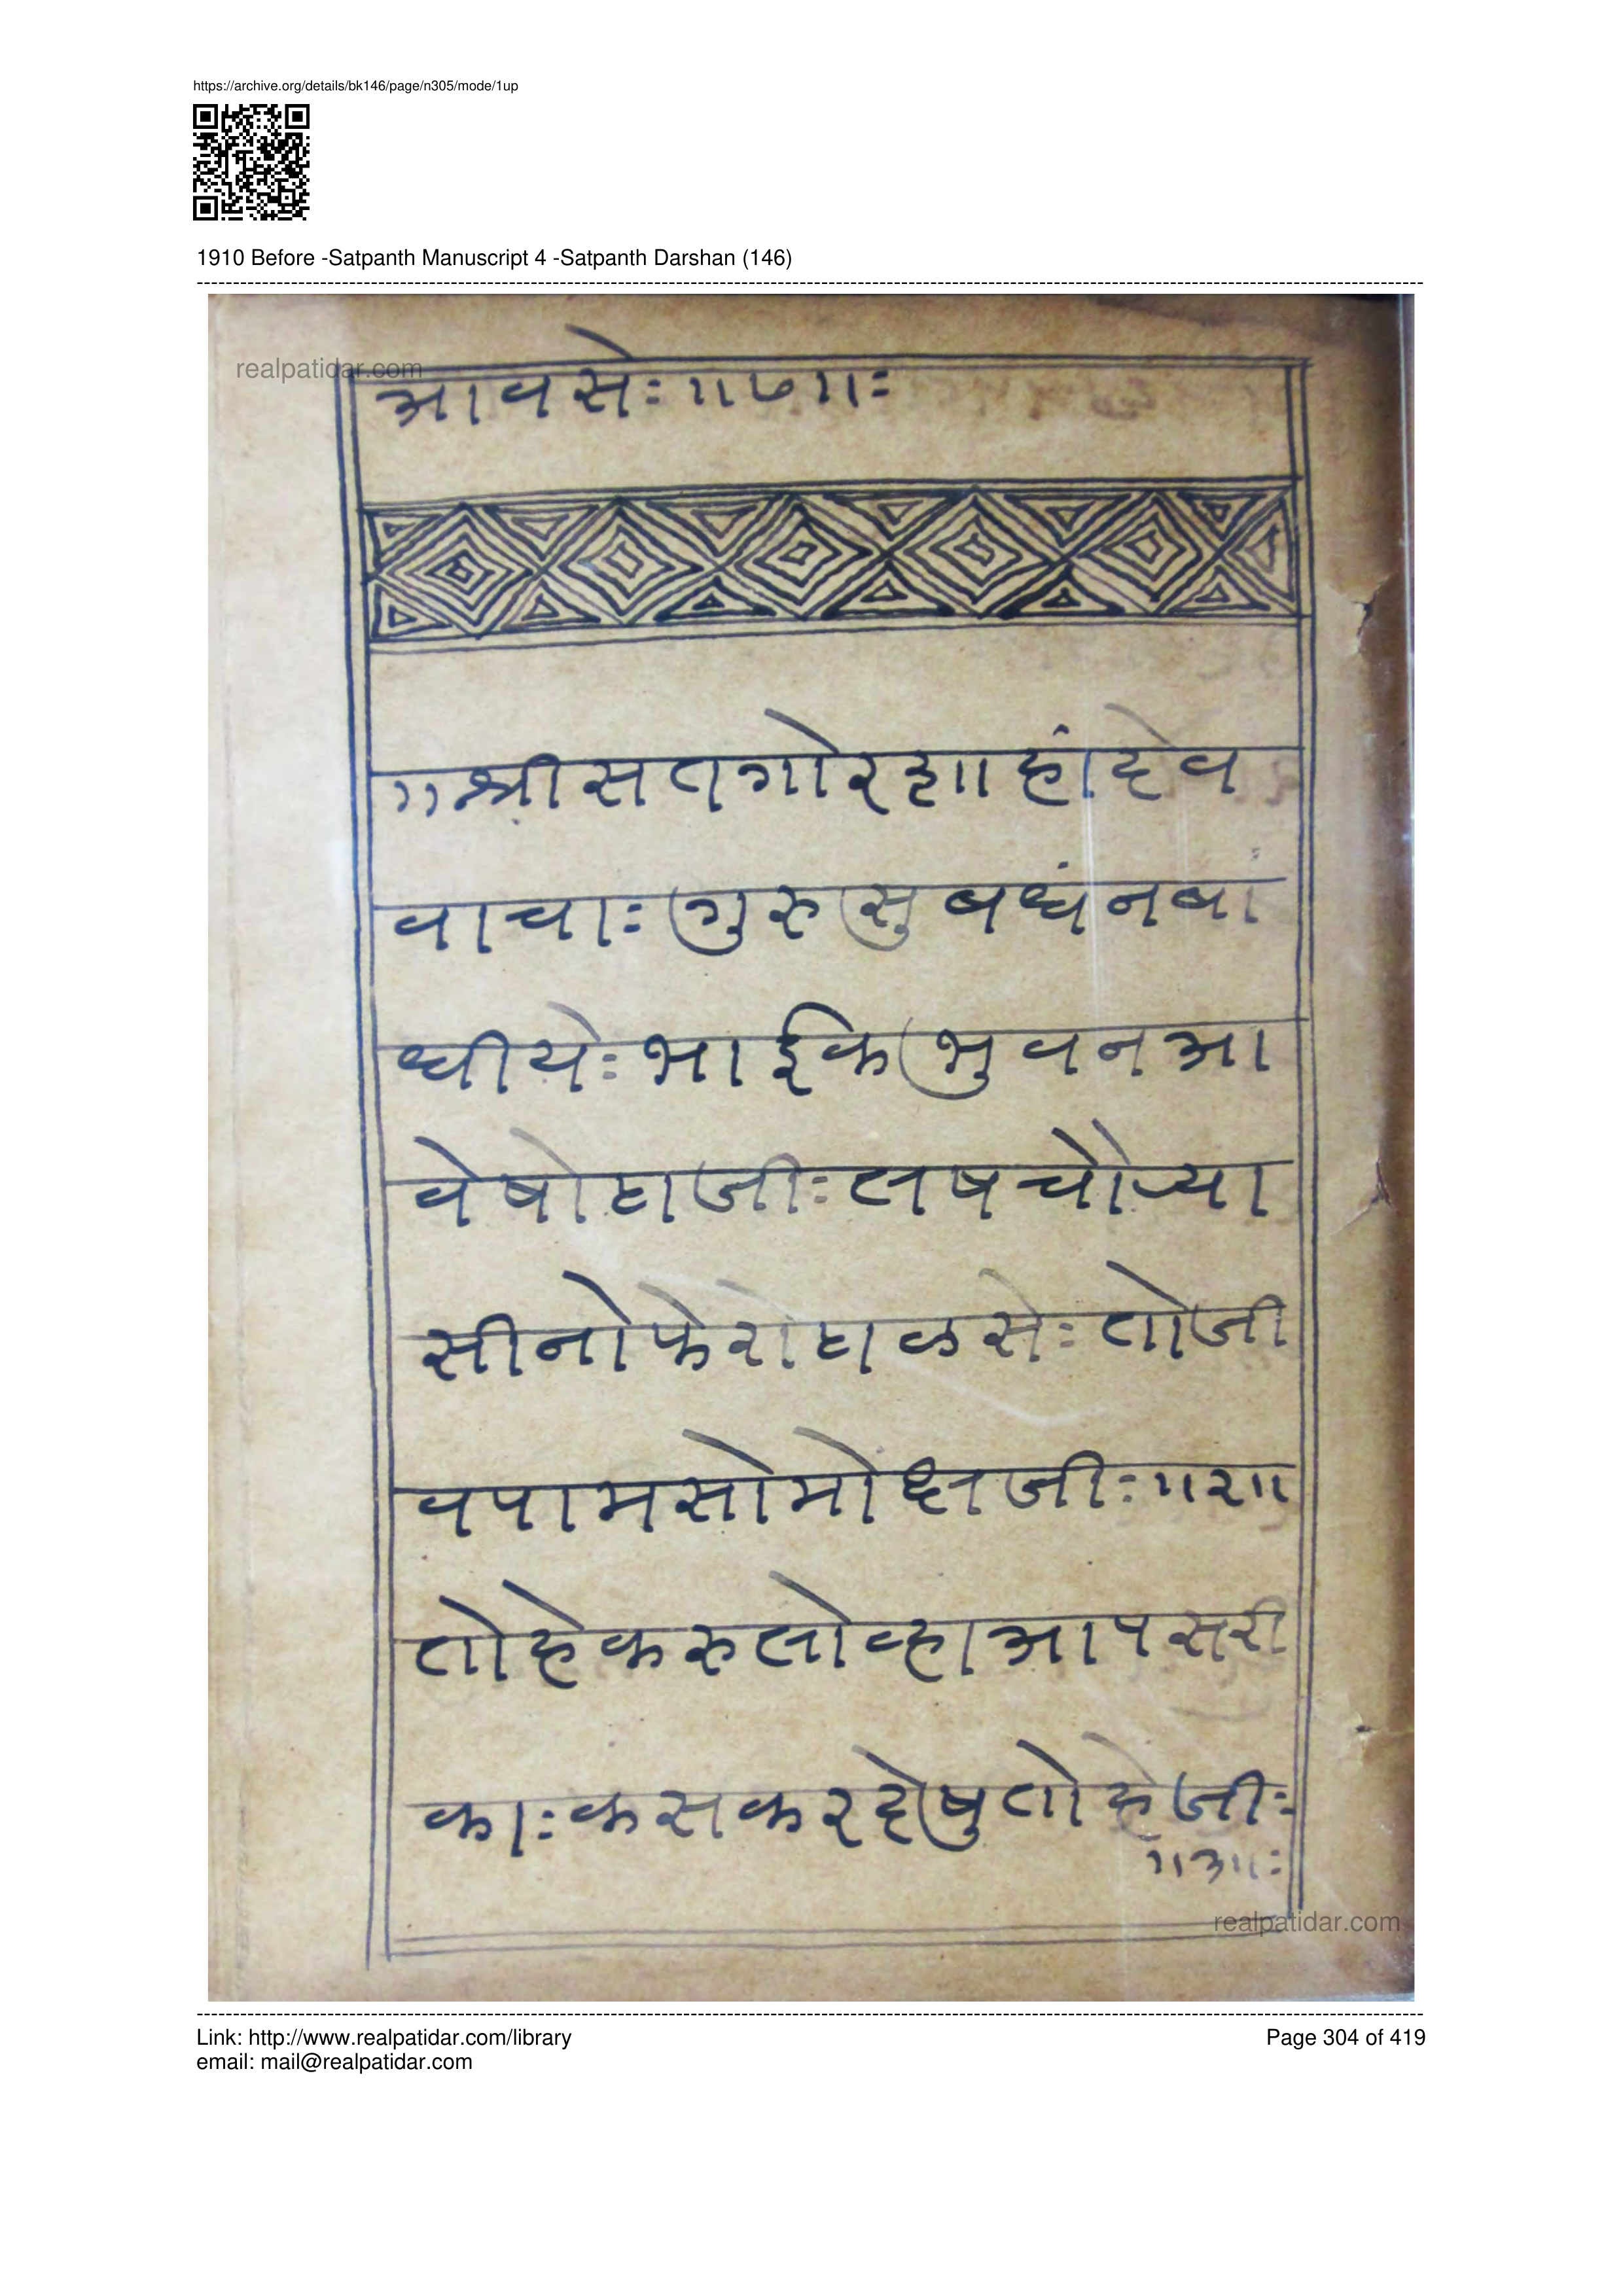 https://archive.org/details/bk146/page/n305/mode/1up
1910 Before -Satpanth Manuscript 4 -Satpanth Darshan (146)
realpatidar.com
आवसेः॥७॥ः
॥श्रीसतगोरशाहांदेव
वाचाः गुरु सु बधंनबां
धीयेः भाईक भुवनआ
वेषोटाजीः लषचौऱ्या
सीनोफेरोटाळसेः तोजी
वपामसोमोक्षजीः॥२॥
तोहेकरुलोव्हाआपसरी
काः कसकरदेषुतोहेजीः
॥३॥ः
realpatidar.com
Link: http://www.realpatidar.com/library
Page 304 of 419
email: mail@realpatidar.com